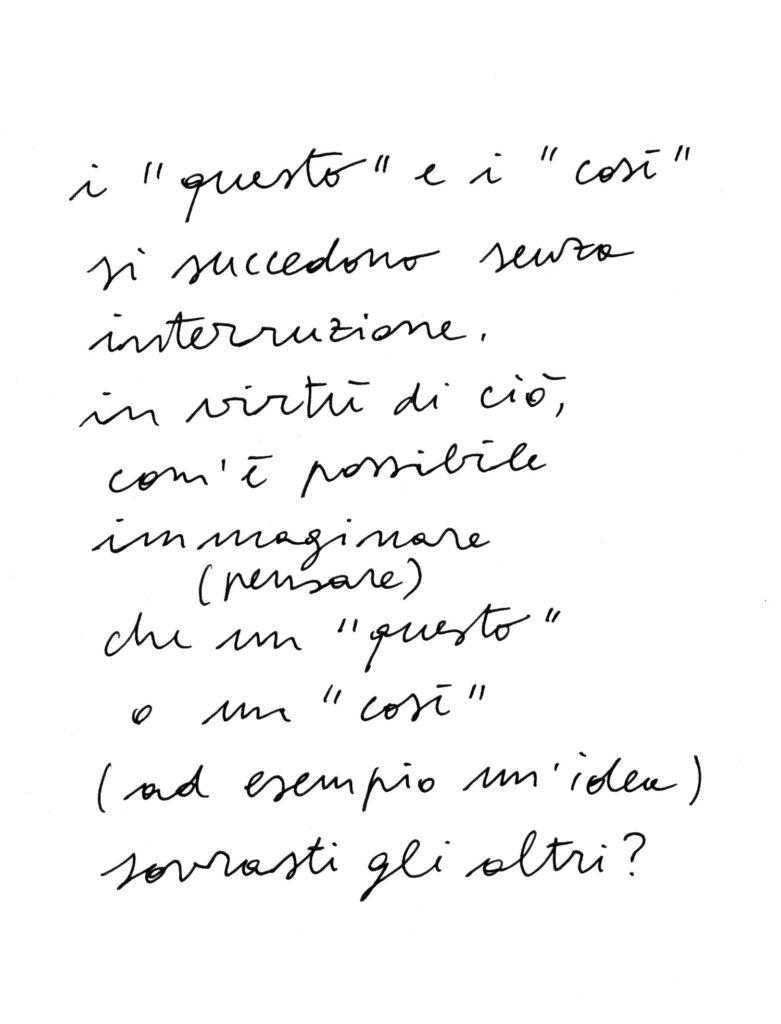 i "questo" e i "così"
si succedono senza
interruzione.
in virtù di ciò,
com'è possibile
immaginare
(pensare)
che un "questo"
o un "così"
(ad esempio un'idea)
sovrasti gli altri?